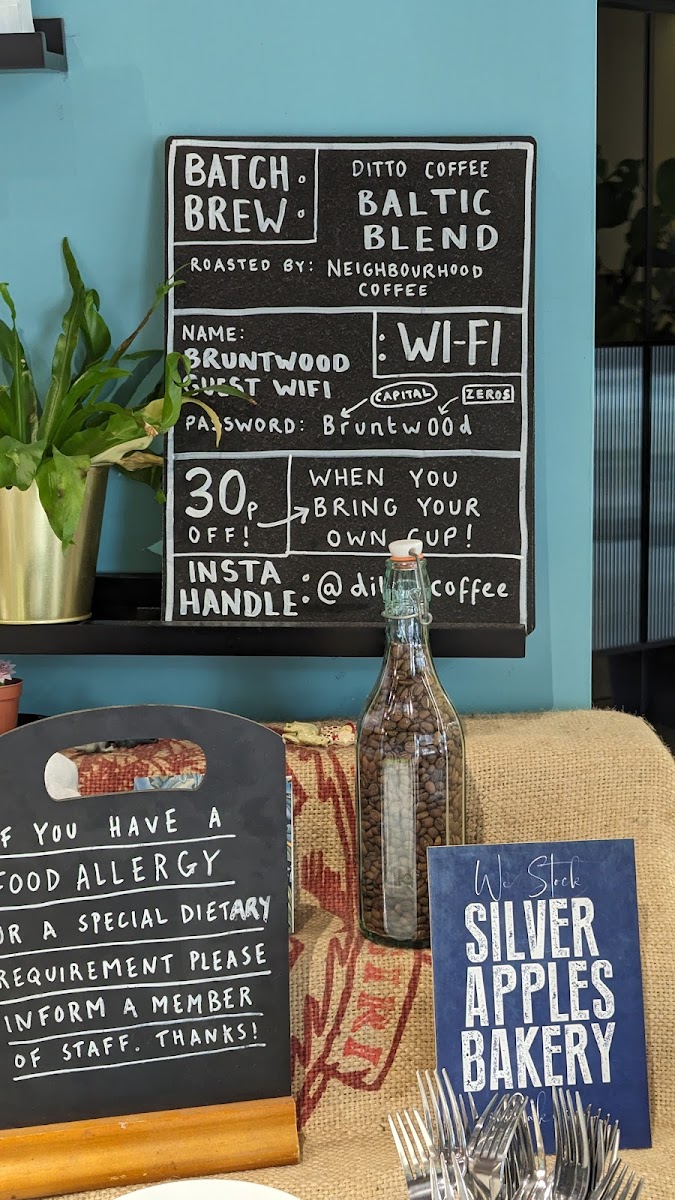 BATCH
BREW :
DITTO COFFEE
BALTIC
BLEND
ROASTED BY: NEIGHBOURHOOD
COFFEE
NAME:
BRUNTWOOD
GUEST WIFI
: WI-FI
CAPITAL
ZEROS
PASSWORD: Bruntw00d
30p
OFF!
WHEN YOU
BRING YOUR
OWN CUP!
INSTA
HANDLE :
@di coffee
F YOU HAVE A
FOOD ALLERGY
OR A SPECIAL DIETARY
REQUIREMENT PLEASE
INFORM A MEMBER
OF STAFF. THANKS!
We Stock
SILVER
APPLES
BAKERY